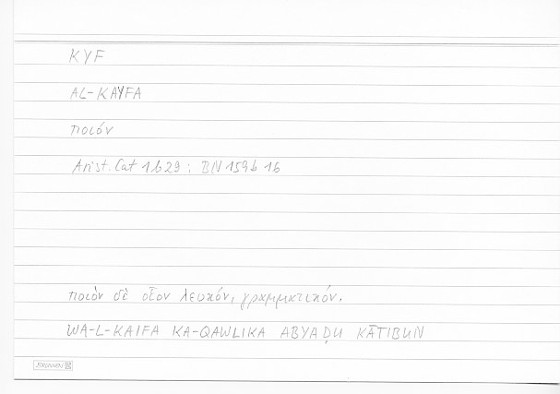 KYF
AL-KAYFA
ποιόν
Arist. Cat 1b29; BN 159b 16
ποιὸν δὲ οἷον λευκόν, γραμματικόν.
WA-L-KAIFA KA-QAWLIKA ABYAḌU KĀTIBUN
BRUNNEN